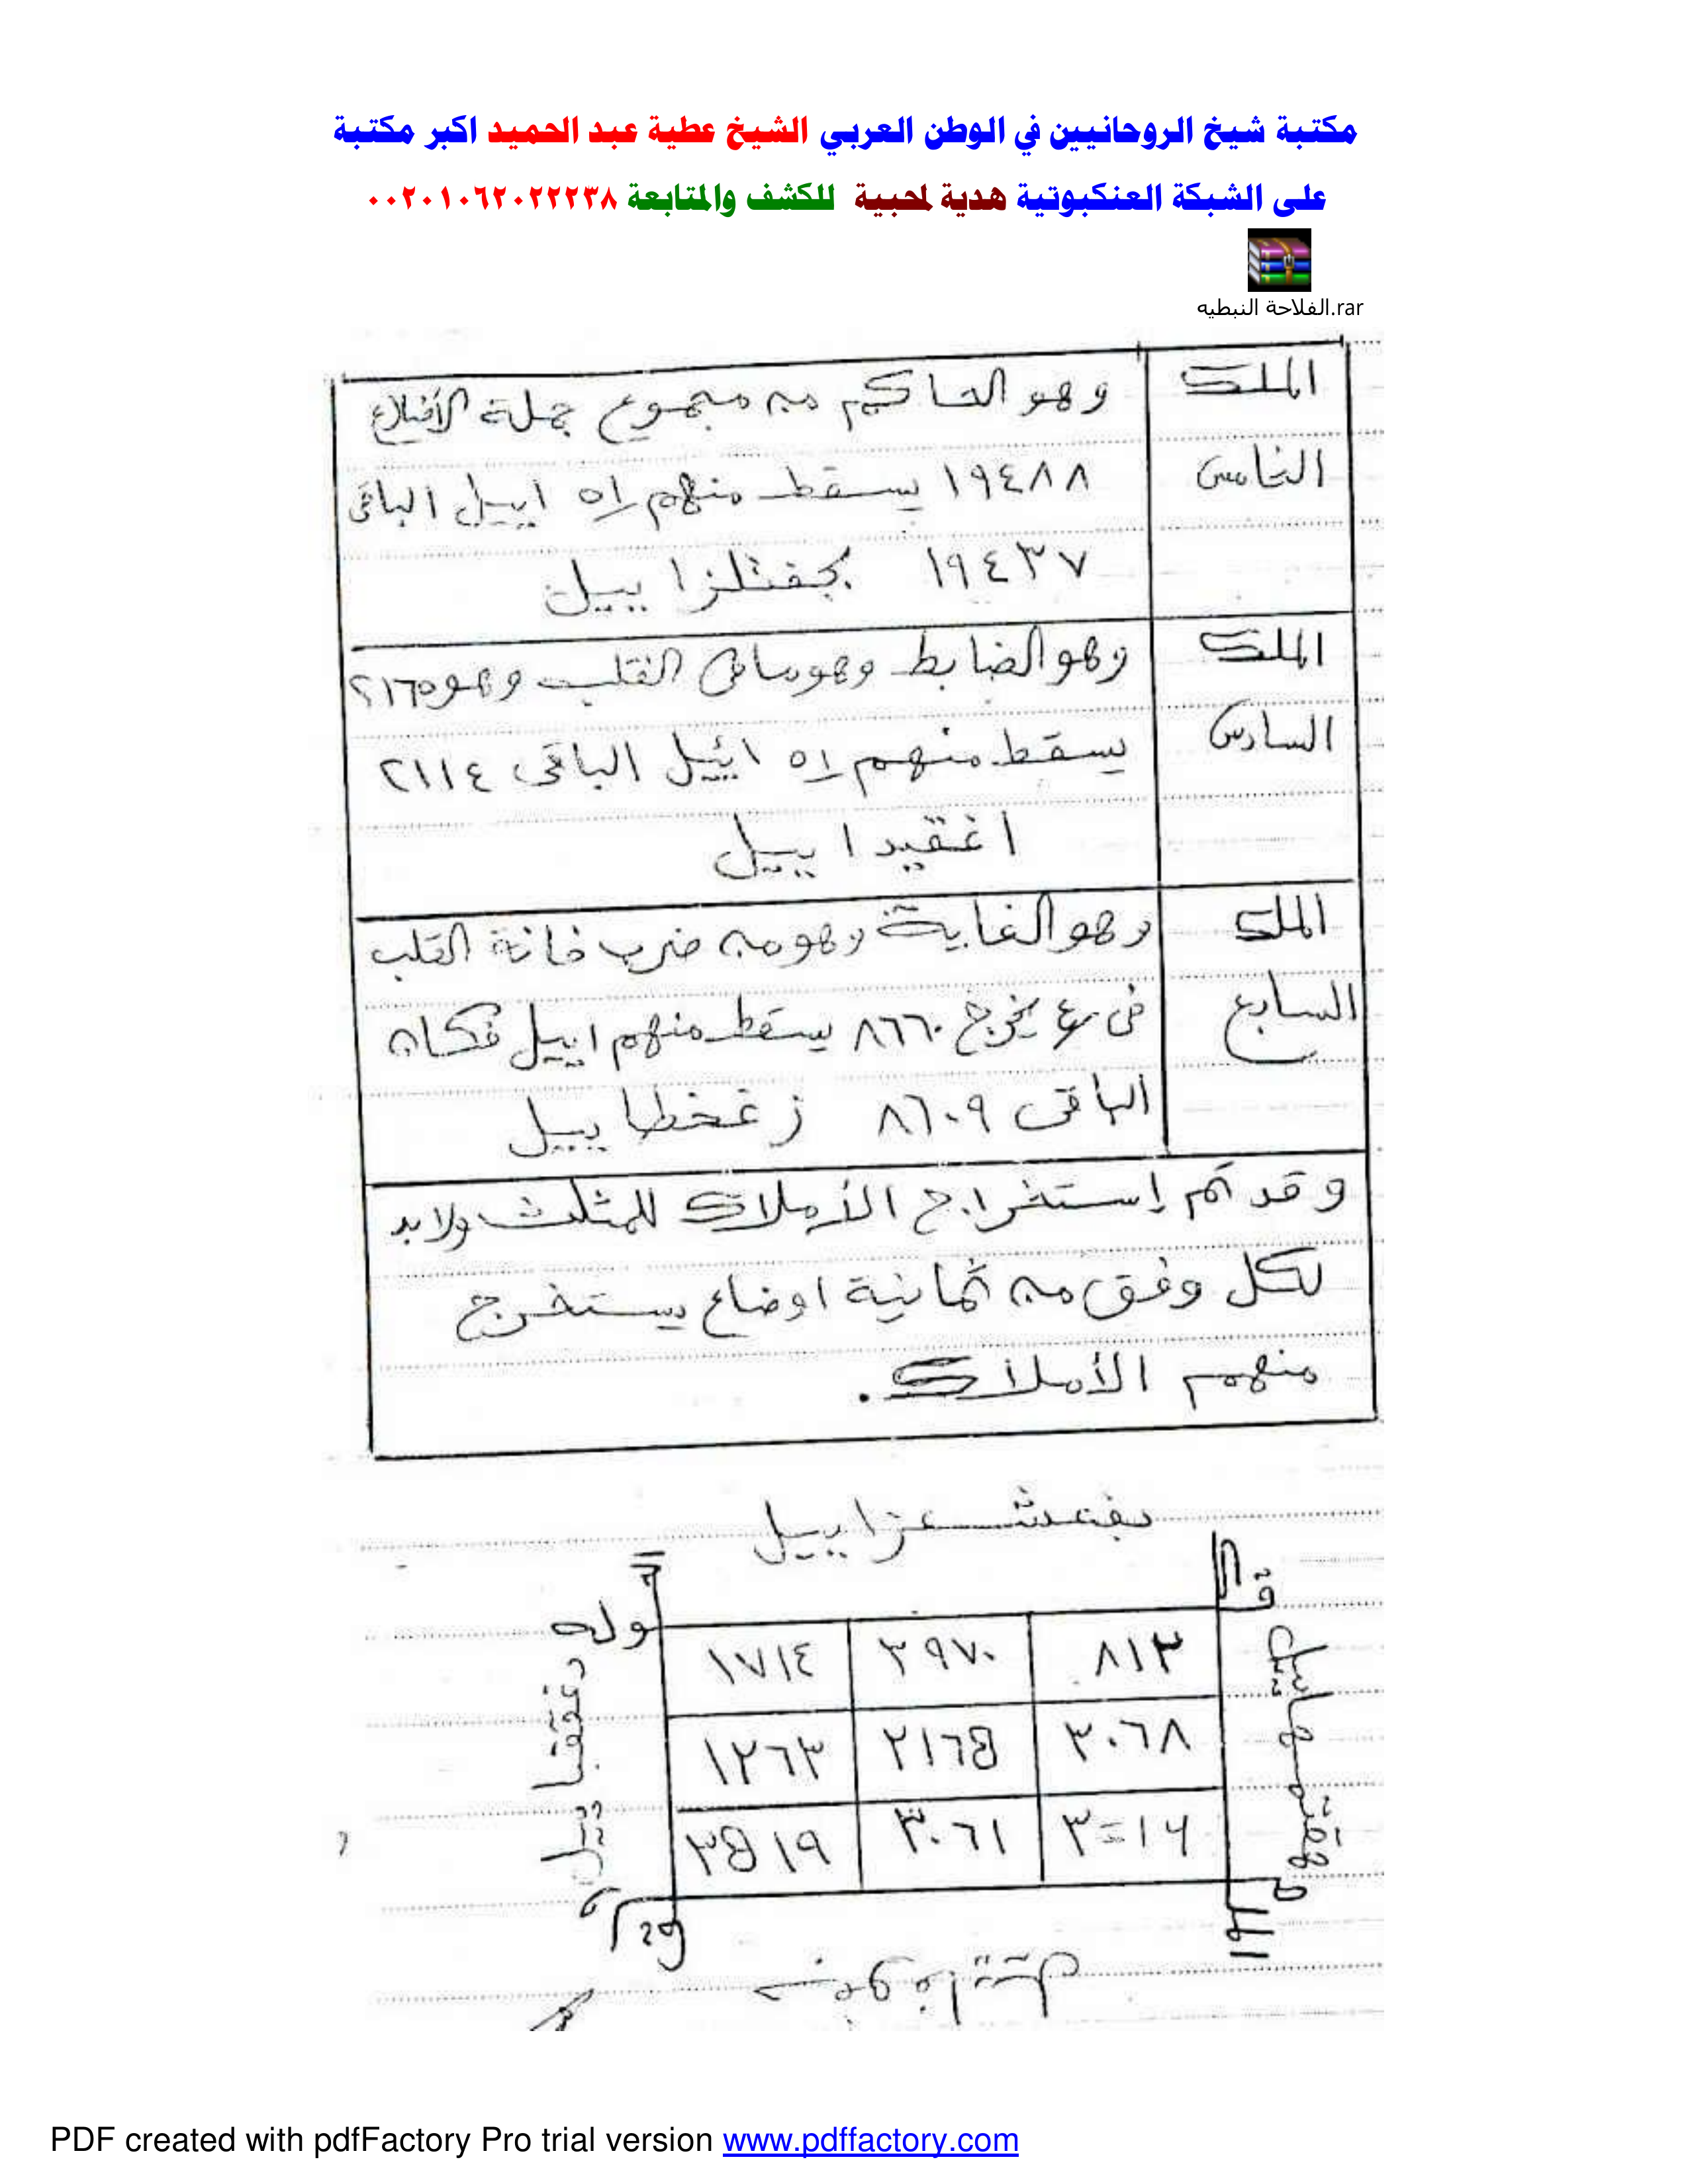 مكتبة شيخ الروحانيين في الوطن العربي الشيخ عطية عبد الحميد اكبر مكتبة
على الشبكة العنكبوتية هدية لمحبية للكشف والمتابعة ٠٠٢٠١٠٦٢٠٢٢٢٣٨
الفلاحة النبطيه.rar
الملك
وهو الحاكم من مجموع جملة الأضلاع
الخامس
١٩٤٨٨ يسقط منهم ٥١ اييل الباقى
١٩٤٣٧ بجفتلزا ييل
الملك
وهو الضابط وهو ساقى القلب وهو ٢١٦٥
السادس
يسقط منهم ٥١ ائييل الباقى ٢١١٤
اغقيدا ييل
الملك
وهو الغاية وهو من ضرب خانة القلب
السابع
فى ٤ يخرج ٨٦٦٠ يسقط منهم اييل فكان
الباقى ٨٦٠٩ زغخطا ييل
وقد تم إستخراج الأملاك للمثلث ولا بد
لكل وفق من ثمانية اوضاع يستخرج
منهم الأملاك.
وله
١٧١٤ ٣٩٧٠ ٨١٣
١٢٦٣ ٢١٦٥ ٣٠٦٨
٣٥١٩ ٣٠٦١
PDF created with pdfFactory Pro trial version www.pdffactory.com